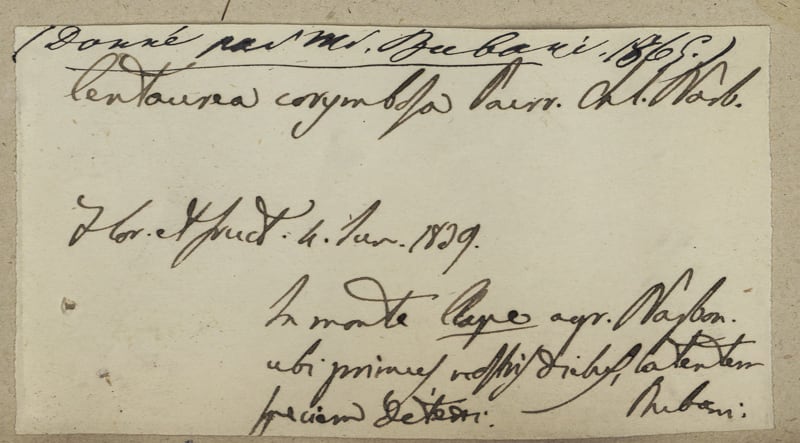 (Donné par Mr. Bubani. 1865.)
Centaurea corymbosa Pourr. Chl. Narb.
Flor. et fruct. 4. Jun. 1839.
In monte Clape agr. Narbon.
ubi primus, nostris diebus, latentem
speciem detexi. — Bubani.